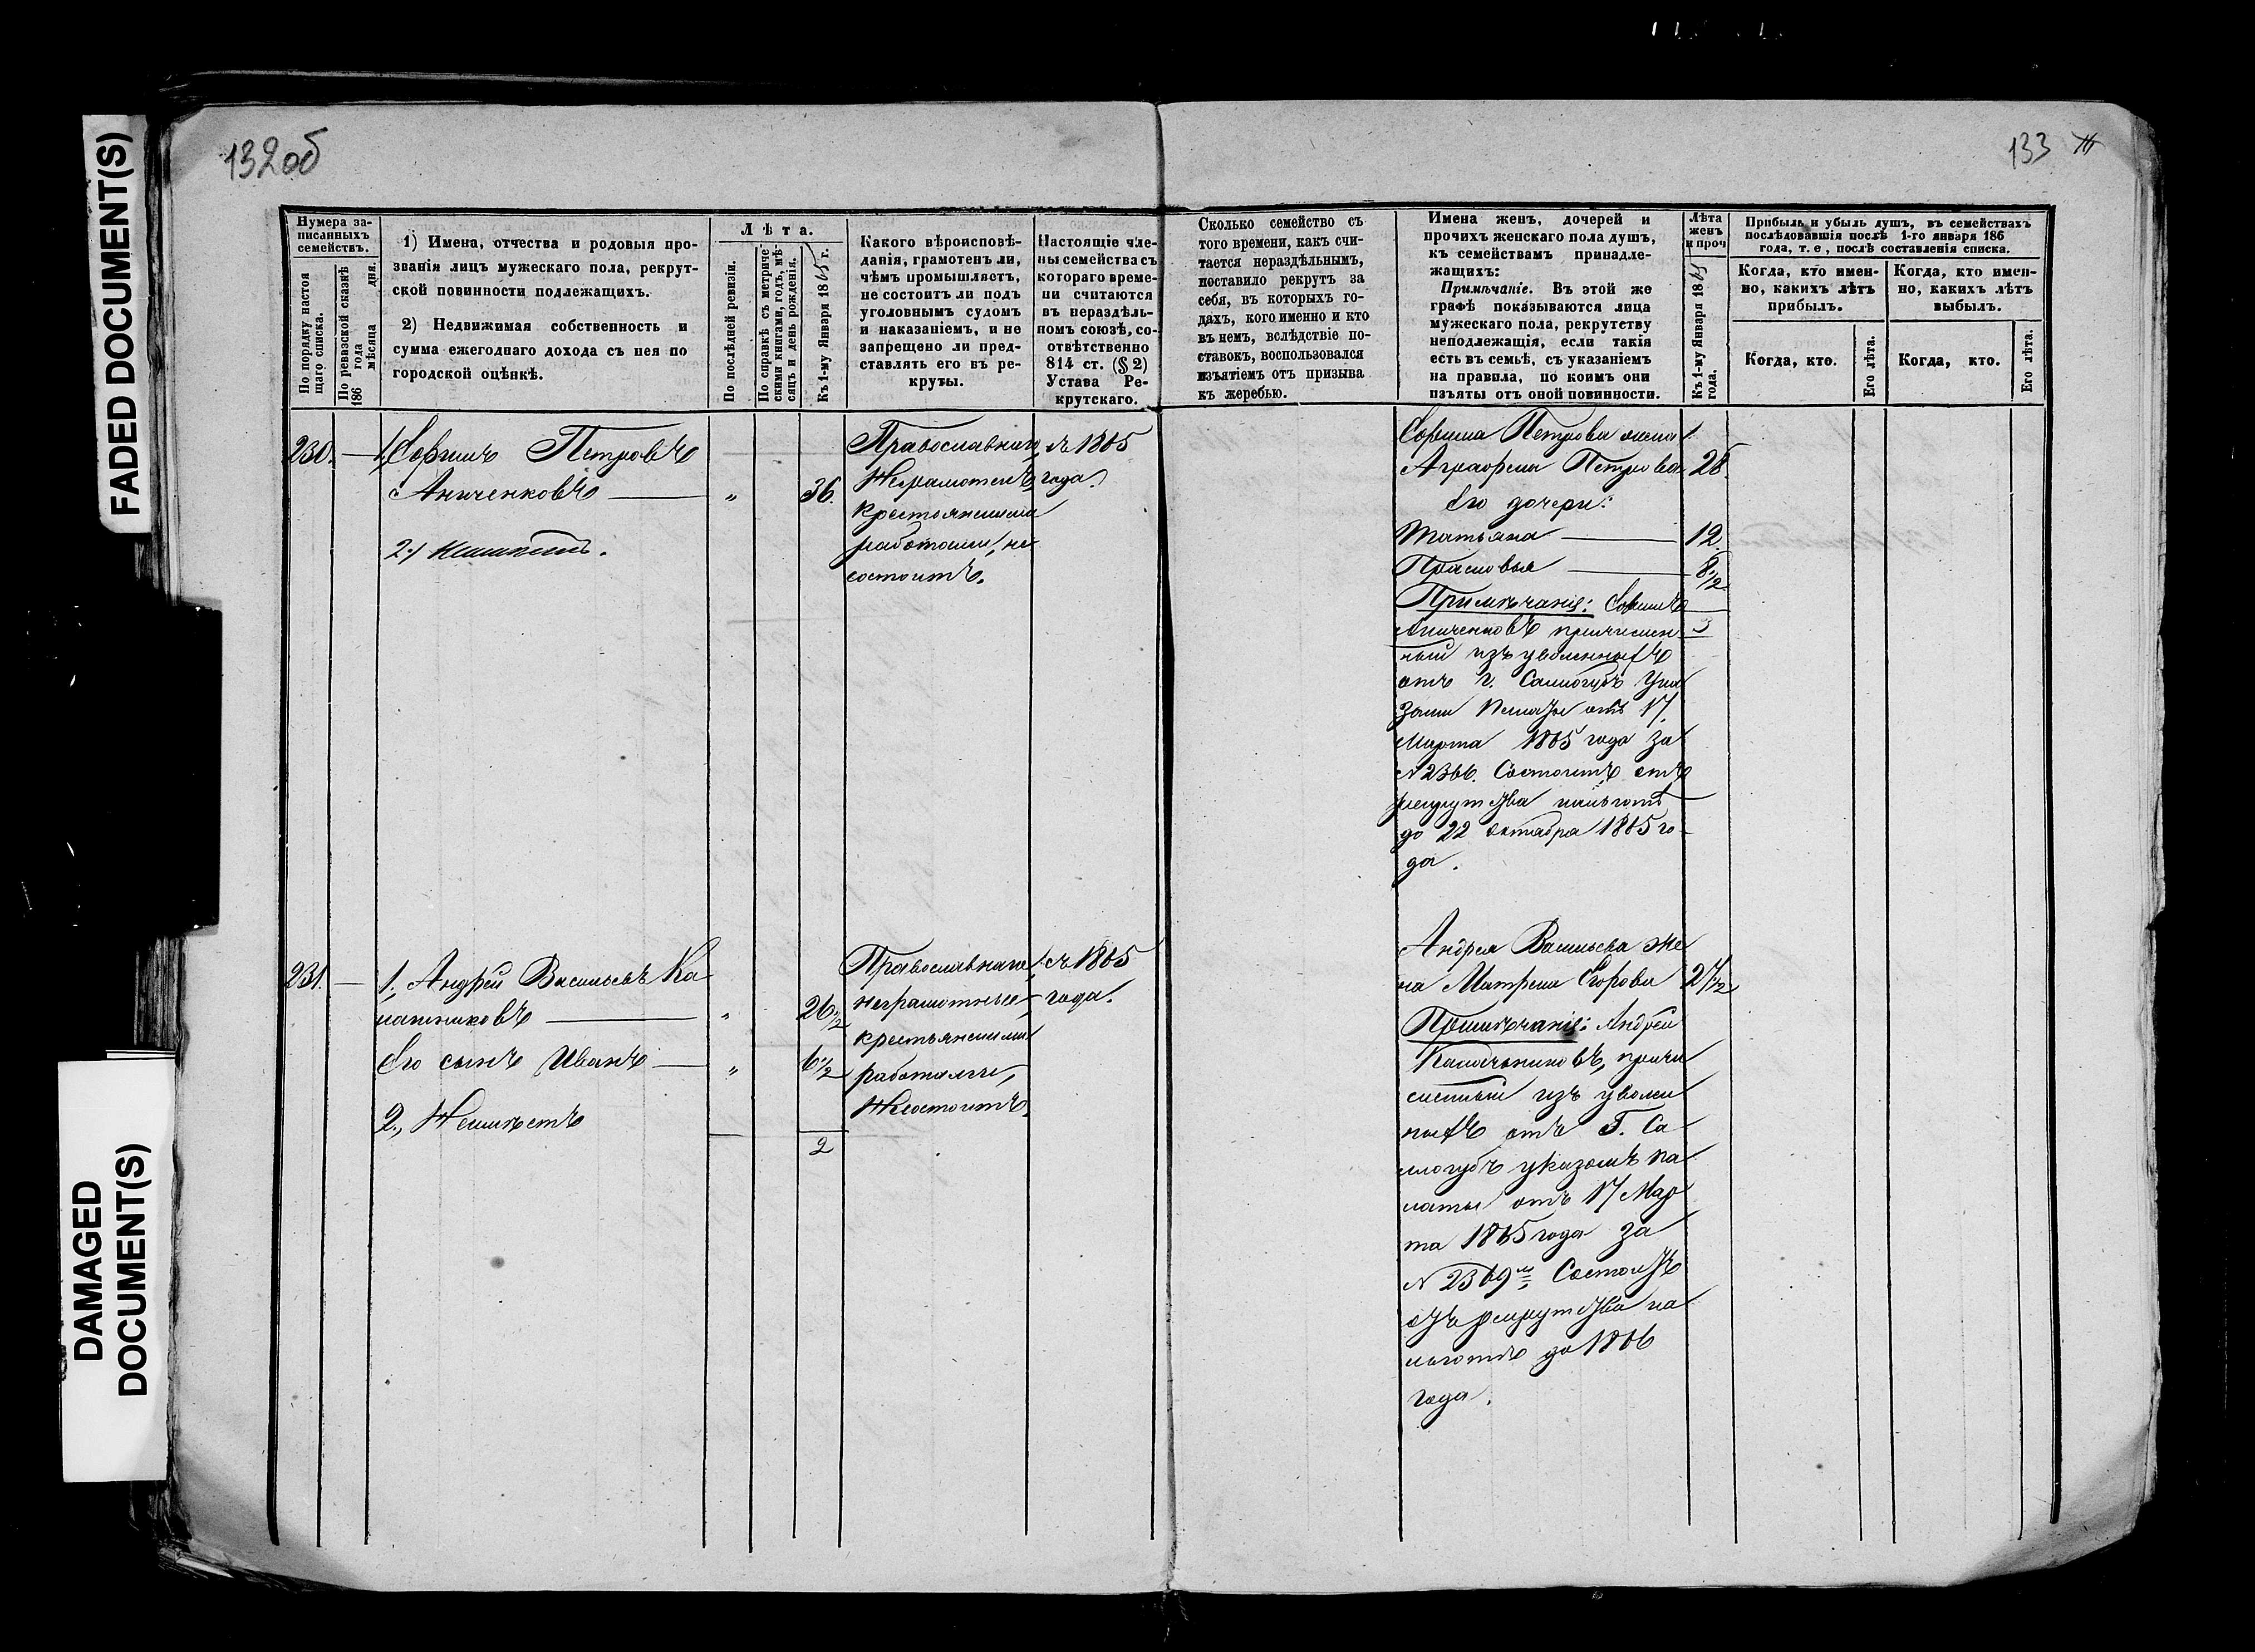 FADED DOCUMENT(S)
DAMAGED
DOCUMENT(S)
132об
133
Нумера за-
писанныхъ
семействъ.
По порядку настоя
щаго списка.
По ревизской сказкѣ
186 года
мѣсяца дня.
1) Имена, отчества и родовыя про-
званія лицъ мужескаго пола, рекрут-
ской повинности подлежащихъ.
2) Недвижимая собственность и
сумма ежегоднаго дохода съ нея по
городской оцѣнкѣ.
Лѣта.
По послѣдней ревизіи.
По справкѣ съ метриче
скими книгами, годъ, мѣ
сяцъ и день рожденія.
Къ 1-му Января 1865 г.
Какого вѣроисповѣ-
данія, грамотенъ ли,
чѣмъ промышляетъ,
не состоитъ ли подъ
уголовнымъ судомъ
и наказаніемъ, и не
запрещено ли пред-
ставлять его въ ре-
круты.
Настоящіе чле-
ны семейства съ
котораго време-
ни считаются
въ нераздѣль-
номъ союзѣ, со-
отвѣтственно
814 ст. (§ 2)
Устава Ре-
крутскаго.
Сколько семейство съ
того времени, какъ счи-
тается нераздѣльнымъ,
поставило рекрутъ за
себя, въ которыхъ го-
дахъ, кого именно и кто
въ немъ, вслѣдствіе по-
ставокъ, воспользовался
изъятіемъ отъ призыва
къ жеребью.
Имена женъ, дочерей и
прочихъ женскаго пола душъ,
къ семействамъ принадле-
жащихъ:
Примѣчаніе. Въ этой же
графѣ показываются лица
мужескаго пола, рекрутству
неподлежащія, если такія
есть въ семьѣ, съ указаніемъ
на правила, по коимъ они
изъяты отъ оной повинности.
Лѣта
женъ
и проч
Къ 1-му Января 1865
года.
Прибыль и убыль душъ, въ семействахъ
послѣдовавшія послѣ 1-го января 186
года, т. е., послѣ составленія списка.
Когда, кто имен-
но, какихъ лѣтъ
прибылъ.
Когда, кто имен-
но, какихъ лѣтъ
выбылъ.
Когда, кто.
Его лѣта.
Когда, кто.
Его лѣта.
230. — 1. Петровъ
Аниченковъ — " 36.
2.)
Православнаго
Неграмотенъ
крестьянскими
работами, не
состоитъ.
съ 1865
года.
Петрова жена
Аграфена Петрова 28.
Его дочери:
Татьяна — 12.
Прасковья — 8 1/2
Примѣчаніе:
Аниченковъ причислен- 3
ный изъ уволенныхъ
отъ г. Саллогубъ Ука
зомъ Палаты отъ 17
Марта 1865 года за
N 2366. Состоитъ отъ
рекрутства на льготѣ
до 22 октября 1865 го-
да.
231. — 1., Андрей Васильевъ Ка
лашниковъ — " 26 1/2
Его сынъ Иванъ — " 6 1/2
2., Неимѣетъ
2
Православнаго
неграмотные
крестьянскими
работами,
Несостоитъ.
съ 1865
года.
Андрея Васильева же
на Матрена Егорова 27 1/2
Примѣчаніе: Андрей
Калашниковъ, причи
сленный изъ уволен
ныхъ отъ Г. Са
логубъ указомъ па
латы отъ 17 Мар
та 1865 года за
N 2369мъ Состоитъ
отъ рекрутства на
льготѣ до 1866
года.